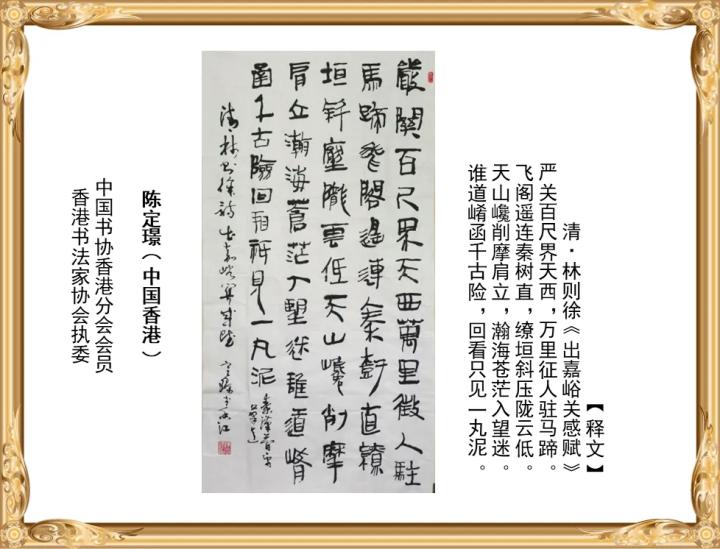 【释文】
清·林则徐《出嘉峪关感赋》
严关百尺界天西，万里征人驻马蹄。
飞阁遥连秦树直，缭垣斜压陇云低。
天山巉削摩肩立，瀚海苍茫入望迷。
谁道崤函千古险，回看只见一丸泥。
嚴關百尺界天西萬里徵人駐
馬蹄飛閣遥連秦樹直繚
垣斜壓隴雲低天山巉削摩
肩立瀚海蒼茫入望迷誰道崤
函千古險回看祇見一丸泥
清林则徐詩出嘉峪關感賦
陈定璟（中国香港）
中国书协香港分会会员
香港书法家协会执委